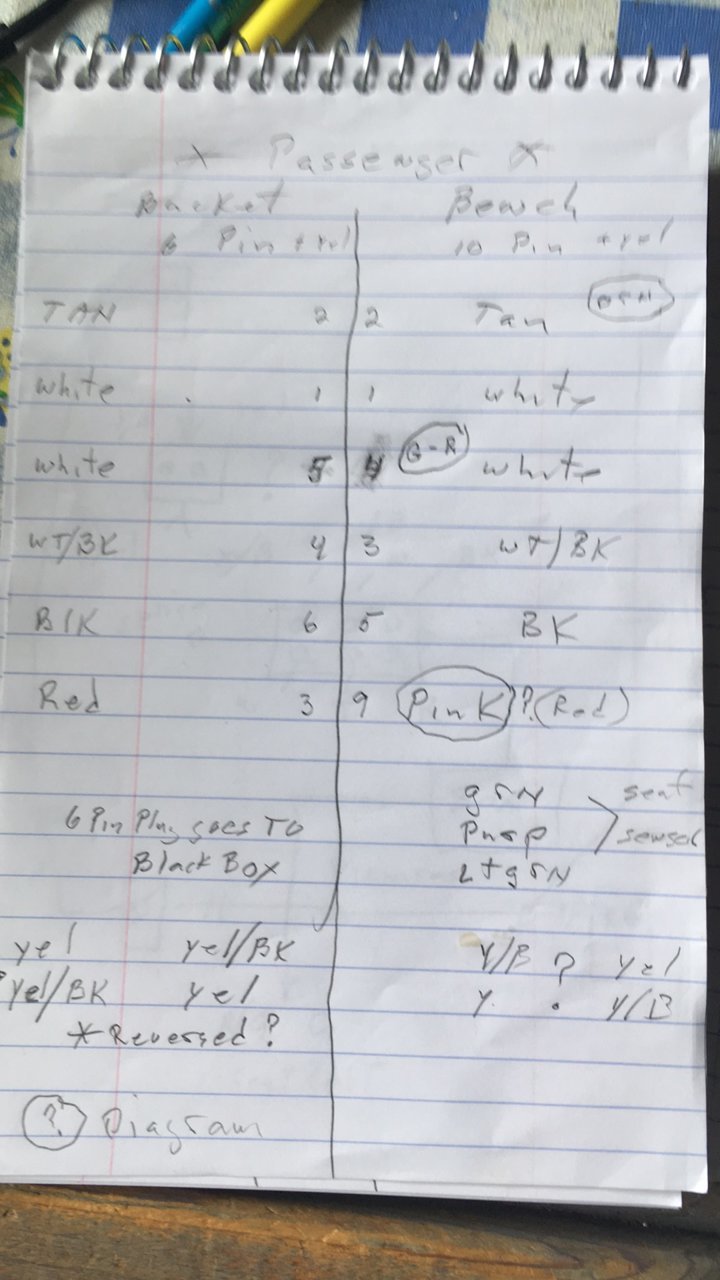 * Passenger *
Bucket Bench
6 Pin + yel 10 Pin + yel
TAN 2 2 Tan
white 1 1 white
white 5 4 G-R white
WT/BK 4 3 WT/BK
BlK 6 5 BK
Red 3 9 Pink ? (Red)
grN seat
6 Pin Plug goes TO Purp sensor
Black Box LtgrN
yel yel/BK Y/B ? yel
yel/BK yel Y. . Y/B
*Reversed?
? Diagram